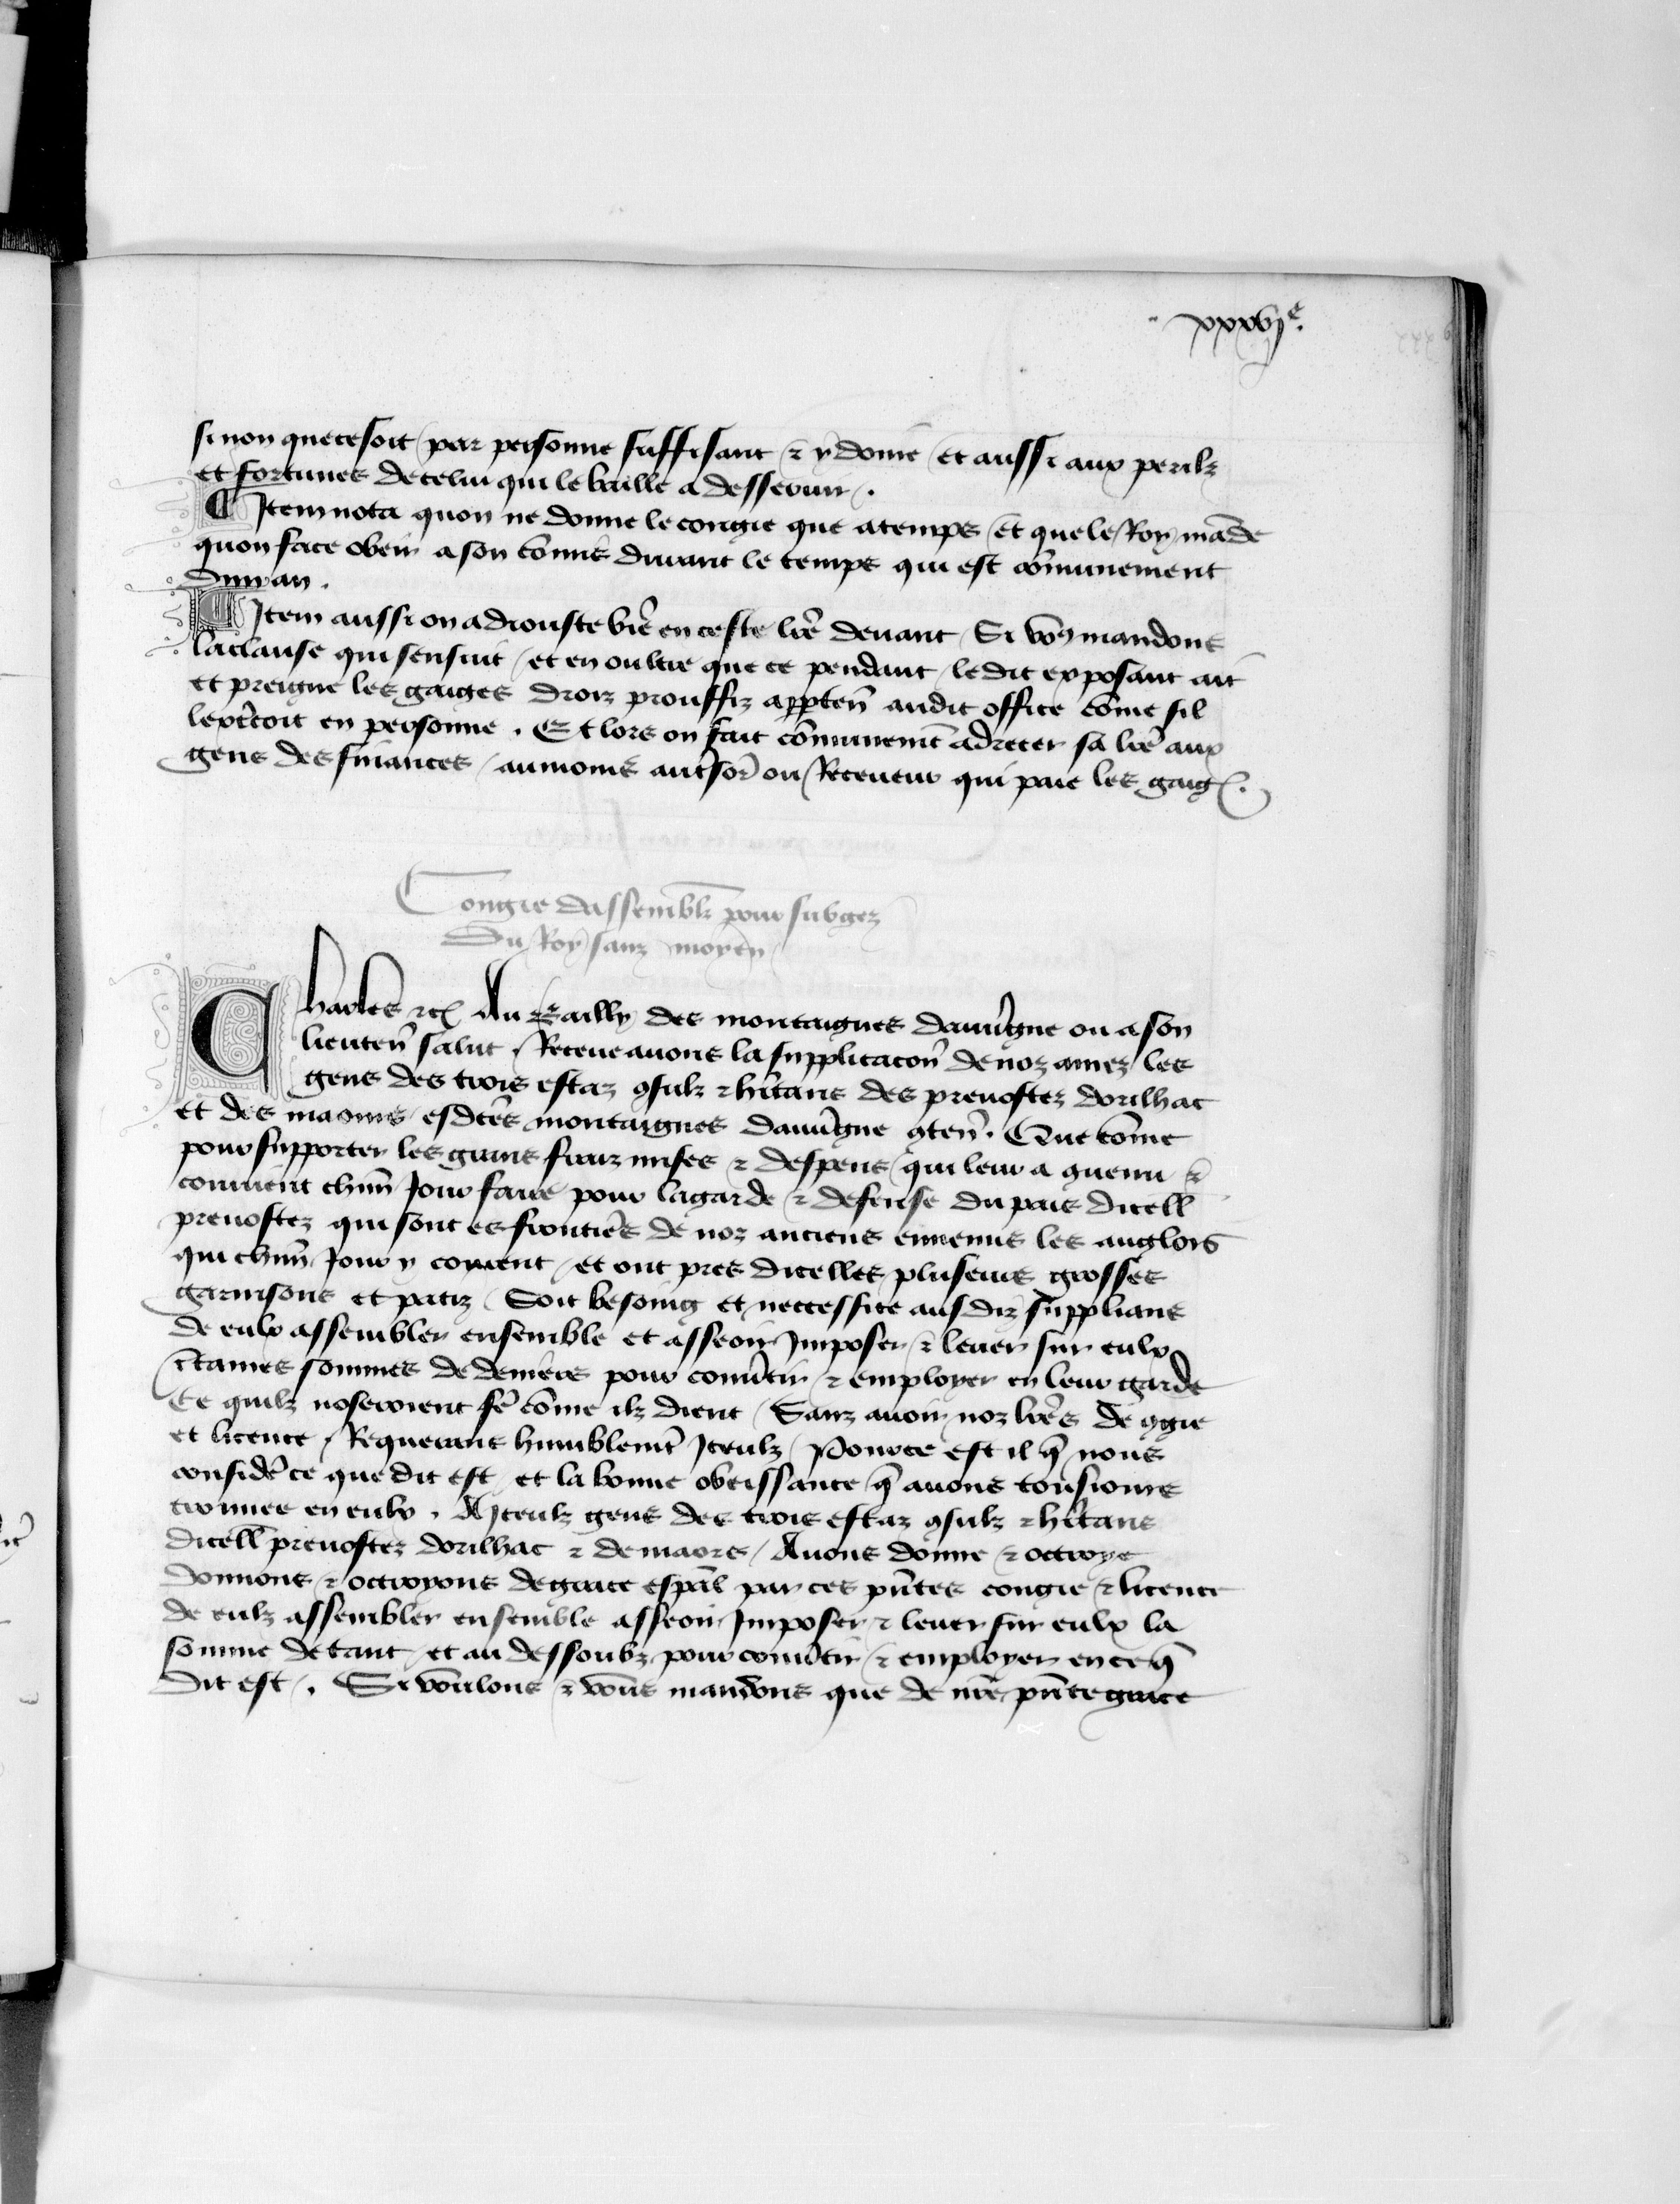 xxxvjᵉ.
sinon que ce soit par personne suffisant & ydoine et aussi aux perilz
et fortunes de celui qui le baille a desseruir.
¶ Item nota quon ne donne le congie que a temps et que le Roy mãde
quon face obeir a son cõmis durant le temps qui est cõmunement
dun an.
¶ Item aussi on adiouste bie᷑ en ceste lr̃e deuant Si voꝰ mandons
la clause qui sensuit et en oultre que ce pendant le dit exposant ait
et preigne les gaiges droiz prouffiz apptẽn audit office cõme sil
lexc̃oit en personne. Et lors on fait cõmunemẽt adrecer sa lr̃e aux
gens des finances aumoins au tr̃sor̃ ou Receueur qui paie les gaigꝭ.
Congie dassembl̃ pour subgez
du Roy sanz moyen
Charles &cꝭ Au Bailly des montaignes dauũgne ou a son
lieuteñ salut. Receue auons la supplicacoñ de noz amez les
gens des trois estaz ꝯsulz & hĩtans des preuostez dorilhac
et des maoms esdc̃es montaignes dauũgne ꝯteñ. Que cõme
pour supporter les grans fraiz mises & despens qui leur a ꝯuenu &
conuient chũn Jour faire pour la garde & defense du pais dicell̃
preuostez qui sont es frontiẽs de noz anciens ennemis les anglois
qui chũn Jour y courent et ont pres dicelles pluseurs grosses
garnisons et patiz Soit besoing et neccessite ausdiz supplians
de eulx assembler ensemble et asseoir Imposer & leuer sur eulx
c̃taines sommes de deniers pour conũtir & employer en leur garde
Ce quilz noseroient fẽ cõme ilz dient Sanz auoir noz lr̃es de ꝯgie
et licence Requerans humblemt̃ Iceulz Pource est il q̃ nous
considẽ ce que dit est et la bonne obeissance q̃ auons tousiours
trouuee en eulx. A Iceulz gens des trois estaz ꝯsulz & hĩtans
dicell̃ preuostez dorilhac & de maors Auons donne & octroye
donnons & octroyons de grace esp̃al par ces pñtes congie & licence
de eulz assembler ensemble asseoir Imposer & leuer sur eulx la
somme de tant et au dessoubz pour conũtir & employer en ce q̃
dit est. Si voulons & voũs mandons que de nr̃e pñte grace